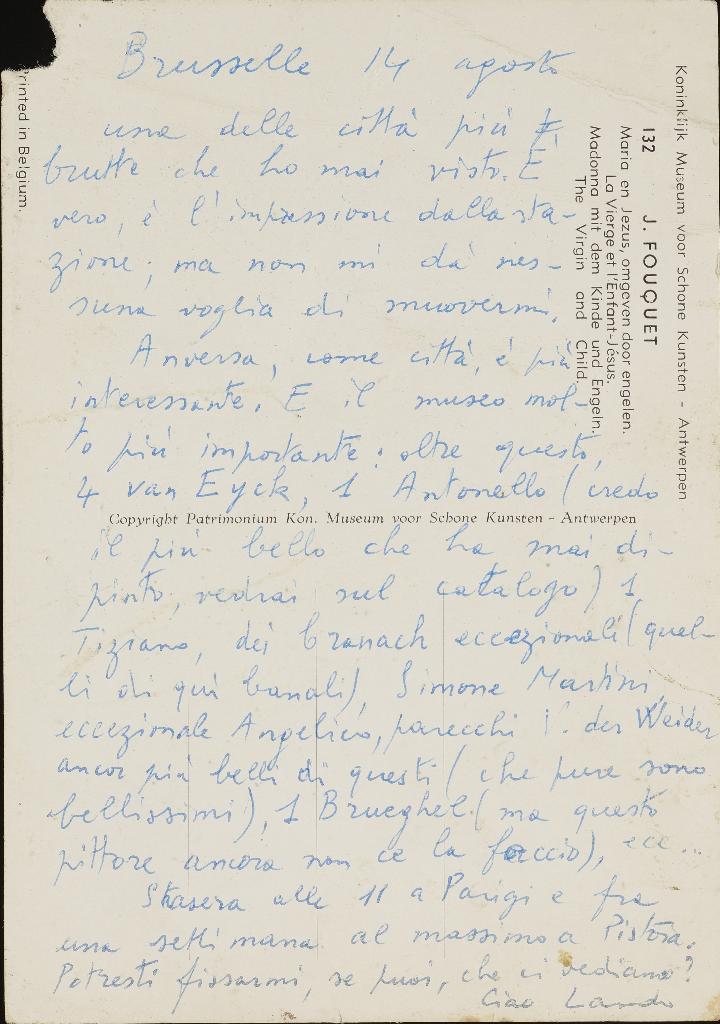 Brusselle 14 agosto
una delle città più
brutte che ho mai visto. È
vero, è l'impressione dalla sta-
zione; ma non mi dà nes-
suna voglia di muovermi.
Anversa, come città, è più
interessante. E il museo mol-
to più importante: oltre questo,
4 van Eyck, 1 Antonello (credo
il più bello che ha mai di-
pinto, vedrai sul catalogo) 1
Tiziano, dei Cranach eccezionali (quel-
li di qui banali), Simone Martini,
eccezionale Angelico, parecchi V. der Weider
ancor più belli di questi (che pure sono
bellissimi), 1 Brueghel (ma questo
pittore ancora non ce la faccio), ecc...
Stasera alle 11 a Parigi e fra
una settimana al massimo a Pistoia.
Potresti fissarmi, se puoi, che ci vediamo?
Ciao Lando
Koninklijk Museum voor Schone Kunsten - Antwerpen
132 J. FOUQUET
Maria en Jezus, omgeven door engelen.
La Vierge et l'Enfant-Jésus.
Madonna mit dem Kinde und Engeln.
The Virgin and Child.
Copyright Patrimonium Kon. Museum voor Schone Kunsten - Antwerpen
Printed in Belgium.